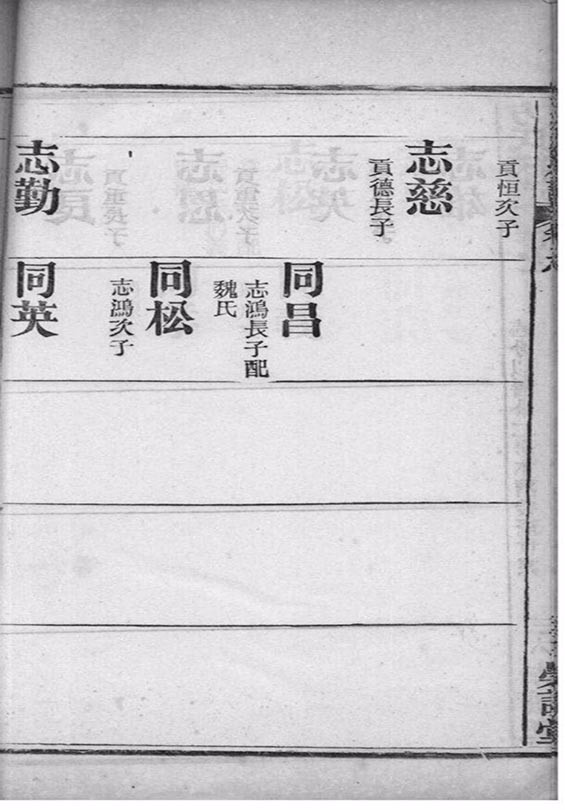 貢恒次子
志慈
貢德長子
志勤
同昌
志鴻長子配
魏氏
同松
志鴻次子
同英